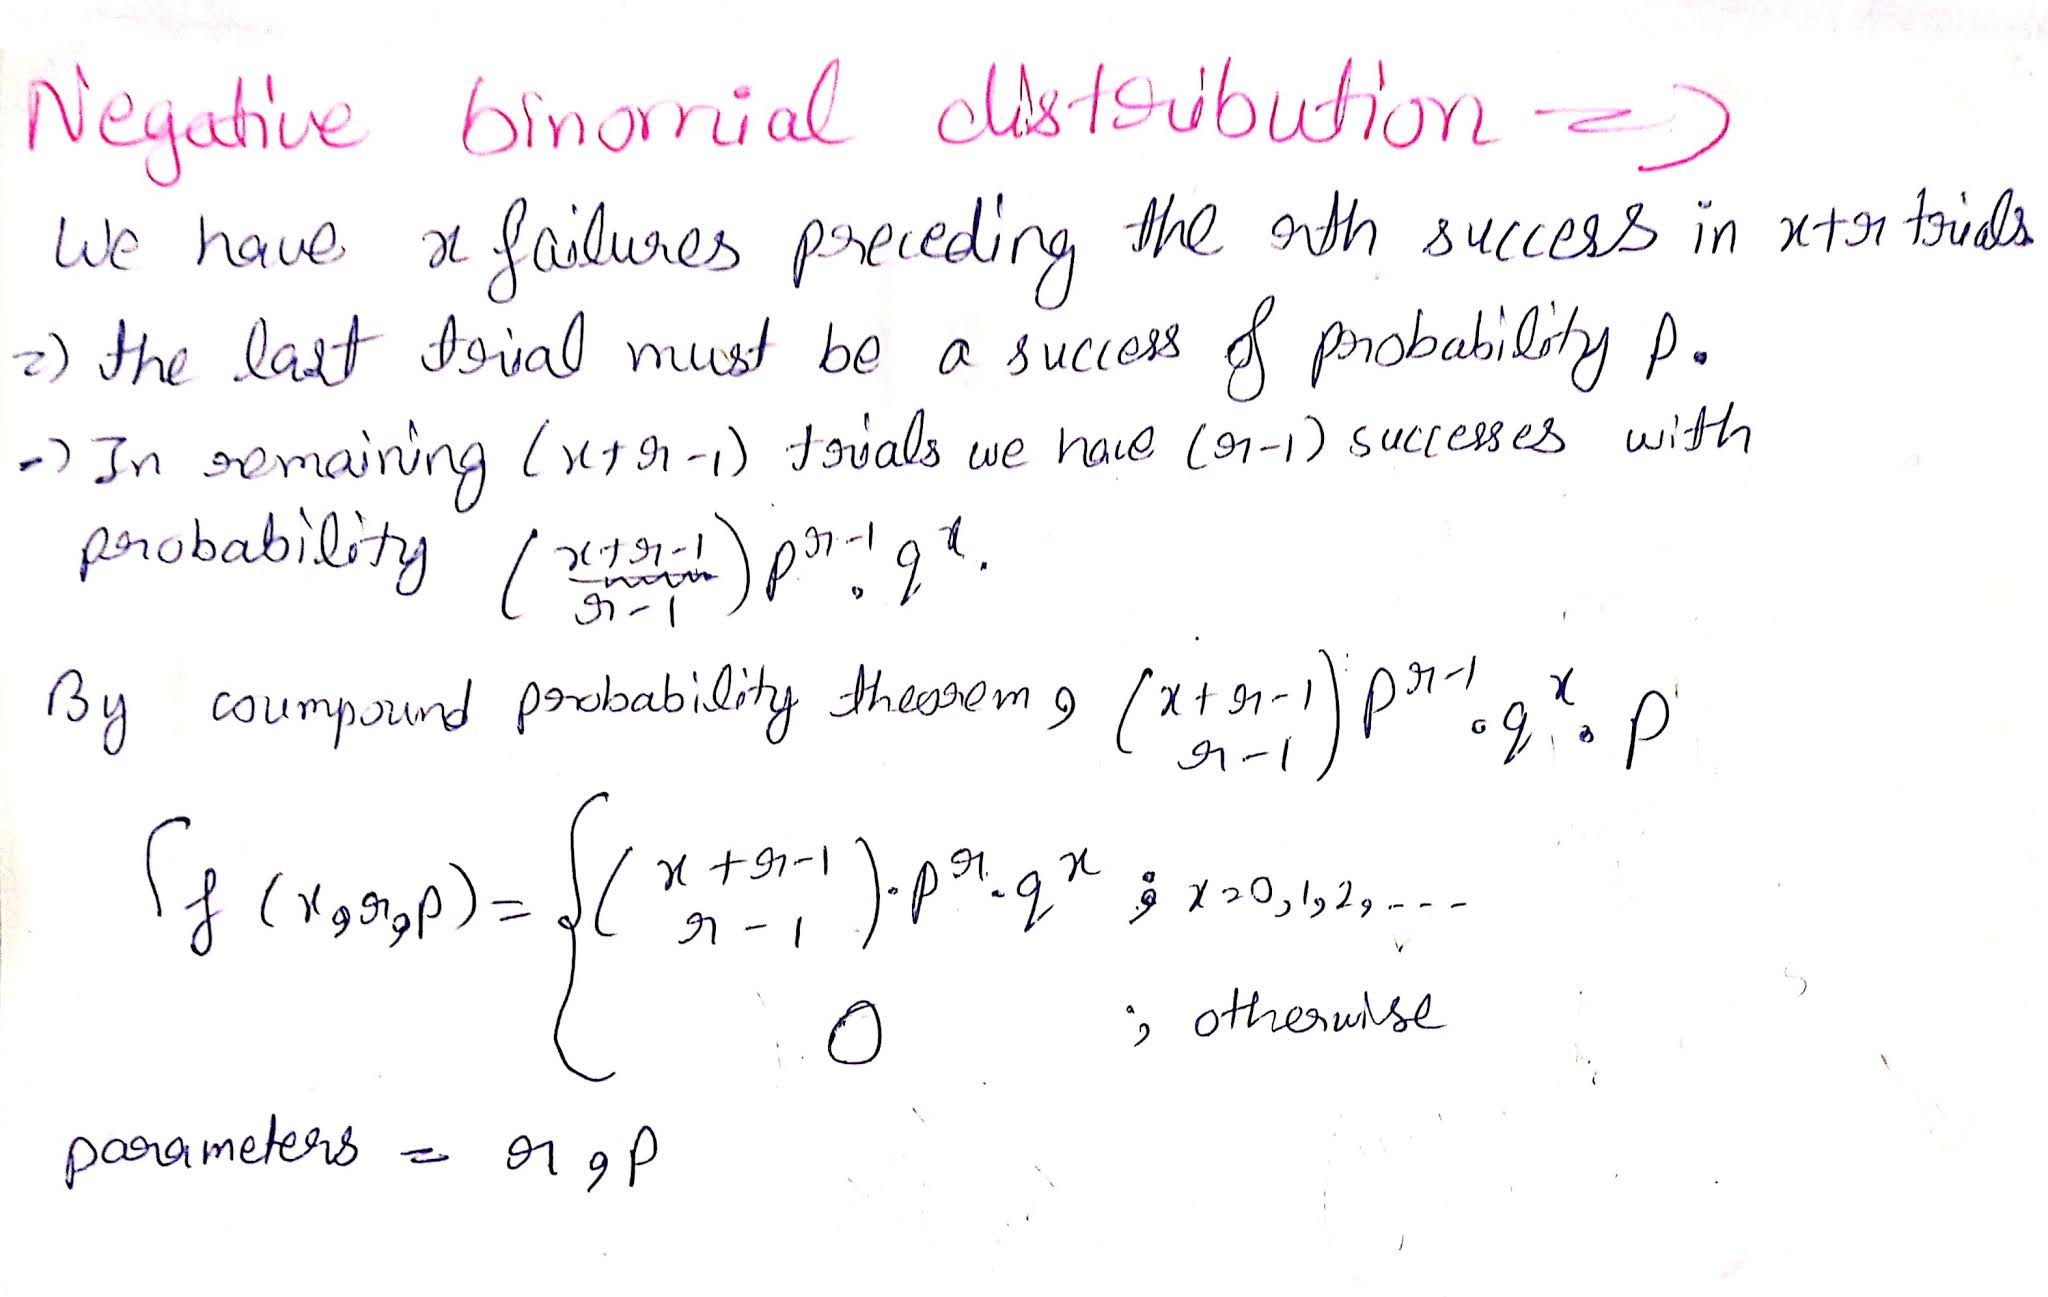 Negative binomial distribution =>
We have x failures preceding the rth success in x+r trials
=) the last trial must be a success of probability p.
-) In remaining (x+r-1) trials we have (r-1) successes with
probability (x+r-1 / r-1) p^(r-1) . q^x.
By coumpound probability theorem, (x+r-1 / r-1) p^(r-1) . q^x . p
f (x,r,p) = { (x+r-1 / r-1) . p^r . q^x ; x=0,1,2,---
0 ; otherwise
parameters = r, p